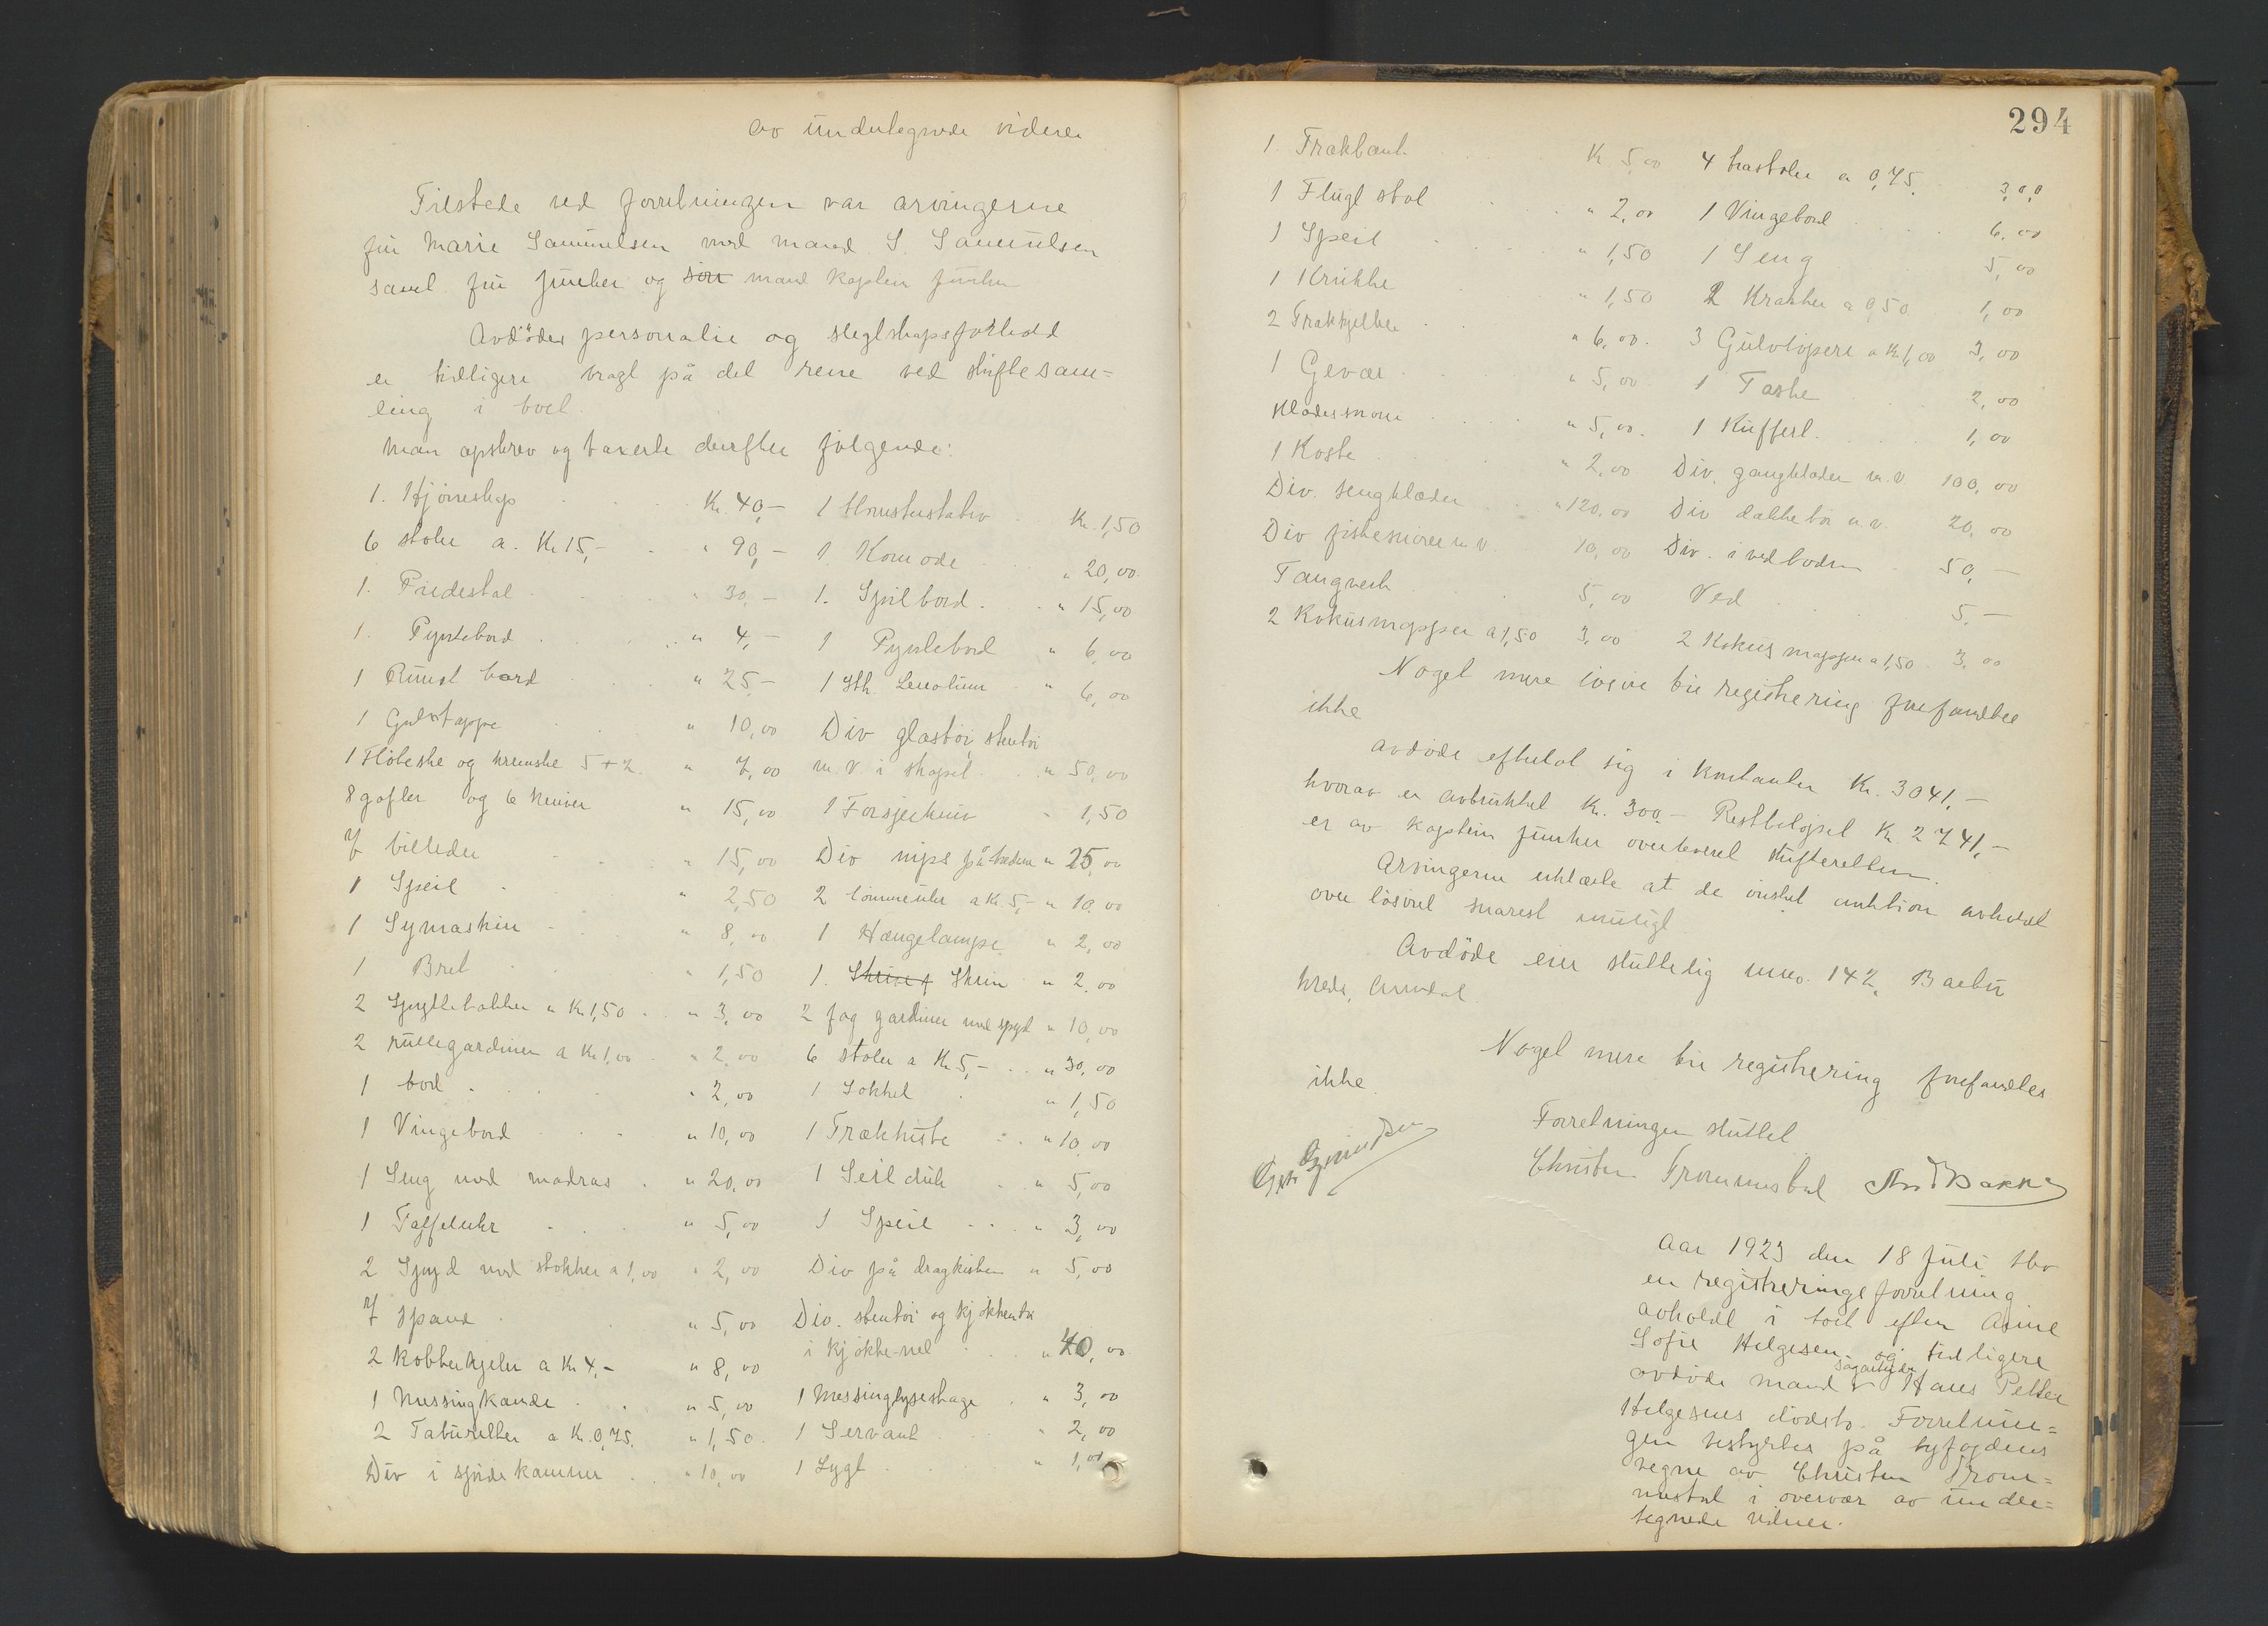 av undertegnede vidner
Tilstede ved forretningen var arvingerne
fru Marie Samuelsen med mand S. Samuelsen
samt fru Juncker og sin mand kaptein Juncker
Avdødes personalie og slegtskapsforhold
er tidligere bragt på det rene ved skiftesam=
ling i boet
Man opskrev og taxerte derefter følgende:
1. Hjørneskap Kr. 40,-
6 stoler a. Kr 15,- " 90,-
1. Piedestal " 30,-
1. Pyntebord " 4,-
1 Rundt bord " 25,-
1 Gulvtæppe " 10,00
1 Fløteske og kremske 5+2 " 7,00
8 gafler og 6 kniver " 15,00
7 billeder " 15,00
1 Speil " 2,50
1 Symaskin " 8,00
1 Bret " 1,50
2 Spyttebakker a Kr 1,50 " 3,00
2 rullegardiner a Kr 1,00 " 2,00
1 bord " 2,00
1 Vingebord " 10,00
1 Seng med madras " 20,00
1 Taffeluhr " 5,00
2 Spyd med stokker a 1,00 " 2,00
7 spand " 5,00
2 Kobberkjeler a Kr 4,- " 8,00
1 Messingkande " 5,00
2 Taburetter a Kr. 0,75. " 1,50
Div i spisekammer " 10,00
Kr. 1,50
1. Komode " 20,00
1. Spilbord " 15,00
1 Pyntebord " 6,00
1 Stk. Lenolium " 6,00
Div glastøi, stentøi
m.v i skapet " 50,00
1 Forsjerkniv " 1,50
Div nips på " 25,00
2 a Kr. 5,- " 10,00
1 Hængelampe " 2,00
1. Skrin " 2,00
2 fag gardiner med spyd " 10,00
6 stoler a Kr 5,- " 30,00
1 Sokkel " 1,50
1 Trækkiste " 10,00
1 Seilduk " 5,00
1 Speil " 3,00
Div på dragkisten " 5,00
Div. stentøi og kjøkkentøi
i kjøkkenet " 40,00
1 Messinglysestage " 3,00
1 Servant " 2,00
1 Lygt " 1,00
294
1. Trækbænk Kr 5,00
1 Flugt stol " 2,00
1 Speil " 1,50
1 Krukke " 1,50
2 Trækkjelker " 6,00
1 Gevær " 5,00
Klædessnore " 5,00
1 Koste " 2,00
Div. sengklæder " 120,00
Div fiskesnører m.v. 10,00
Tangverk 5,00
2 Kokusmapper a 1,50 3,00
4 træstoler a 0,75. 3,00
1 Vingebord 6,00
1 Seng 5,00
2 Krakker a 0,50 1,00
3 Gulvløpere a Kr 1,00 3,00
1 Taske 2,00
1 Kuffert 1,00
Div. gangklæder m.v 100,00
Div dækketøi m.v. 20,00
Div. i vedboden 50,-
Ved 5,-
2 Kokus mapper a 1,50 3,00
Noget mere løsøre til registrering forefandtes
ikke
Avdøde efterlot sig i kontanter Kr. 3041,-
hvorav er avbrukket Kr. 300,- Restbeløpet Kr 2741,-
er av kaptein Juncker overlevert skifteretten.
Arvingerne erklærte at de ønsket auktion avholdt
over løsøret snarest muligt
Avdøde eier skattelig mno. 142, Barbu
kreds, Arendal
Noget mere til registrering forefandtes
ikke.
Forretningen sluttet
Christen Brommestad
Aar 1923 den 18 Juli blev
en registreringsforretning
avholdt i boet efter Anne
Sofie Helgesen og tidligere
avdøde mand v sagarbeider Hans Petter
Helgesens dødsbo. Forretnin=
gen bestyrtes på byfogdens
vegne av Christen Brom=
mestad i overvær av under=
tegnede vidner.